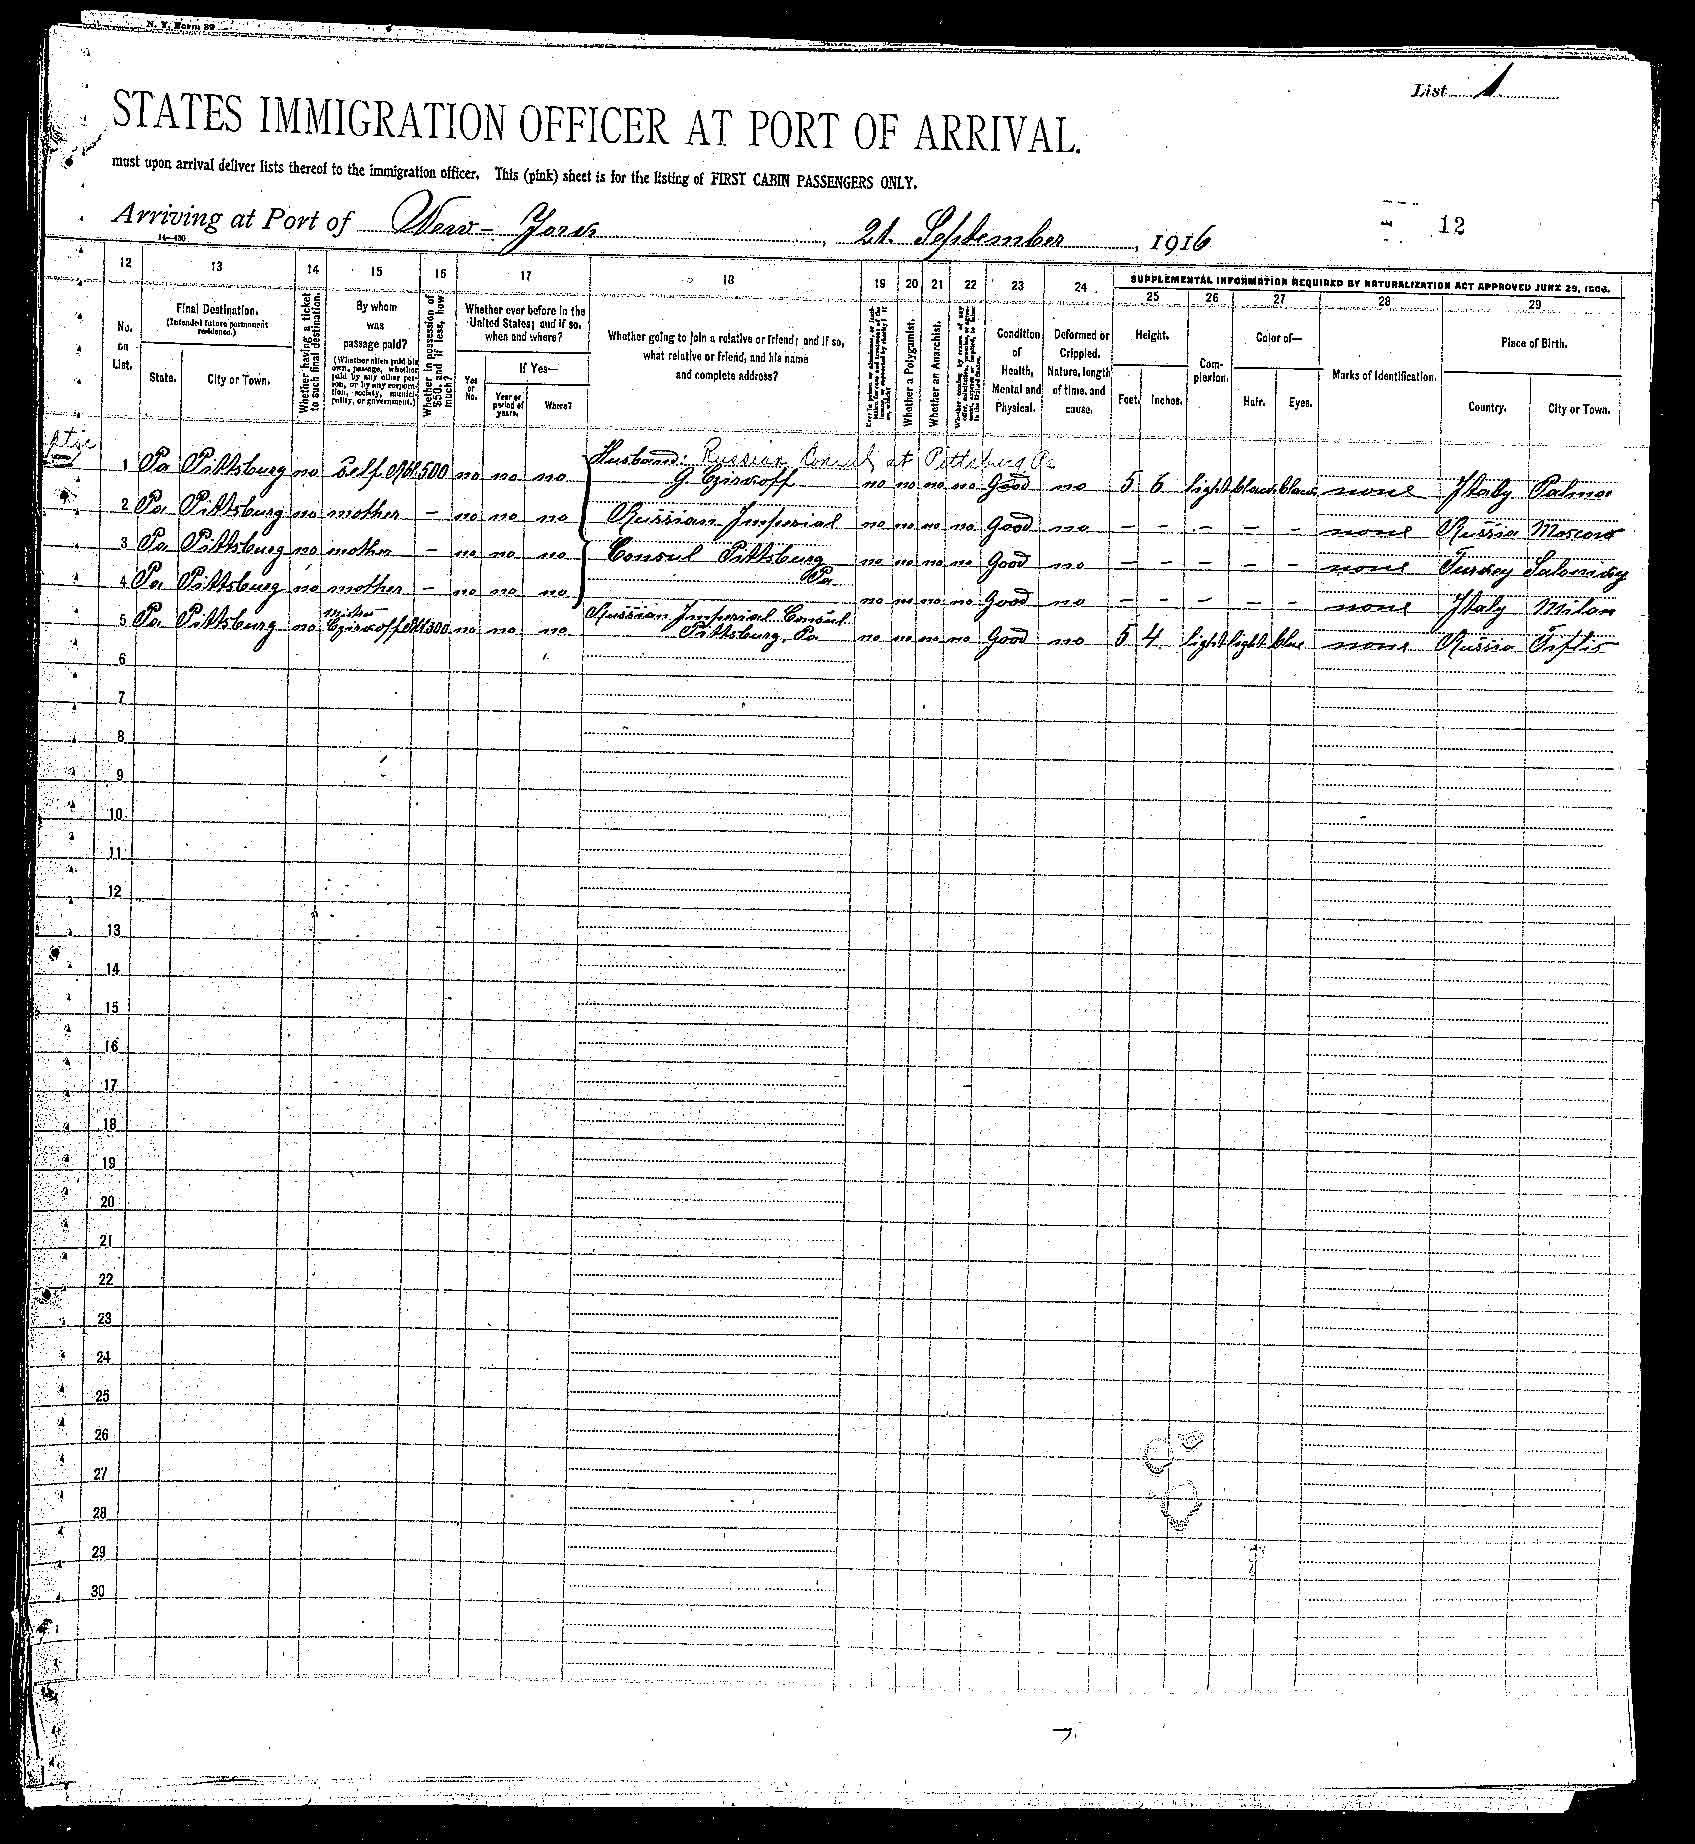 N. Y. Form 89
List 1
STATES IMMIGRATION OFFICER AT PORT OF ARRIVAL.
must upon arrival deliver lists thereof to the immigration officer. This (pink) sheet is for the listing of FIRST CABIN PASSENGERS ONLY.
Arriving at Port of New-York, 21. September, 1916
12
14—430
12 13 14 15 16 17 18 19 20 21 22 23 24 SUPPLEMENTAL INFORMATION REQUIRED BY NATURALIZATION ACT APPROVED JUNE 29, 1906.
25 26 27 28 29
No. on List.
Final Destination.
(Intended future permanent residence.)
State. City or Town.
Whether having a ticket to such final destination.
By whom was passage paid?
(Whether alien paid his own passage, whether paid by any other person, or by any corporation, society, municipality, or government.)
Whether in possession of $50, and if less, how much?
Whether ever before in the United States; and if so, when and where?
Yes or No.
If Yes—
Year or period of years. Where?
Whether going to join a relative or friend; and if so, what relative or friend, and his name and complete address?
Whether a Polygamist.
Whether an Anarchist.
Condition of Health, Mental and Physical.
Deformed or Crippled. Nature, length of time, and cause.
Height.
Feet. Inches.
Complexion.
Color of—
Hair. Eyes.
Marks of Identification.
Place of Birth.
Country. City or Town.
Husband: Russian Consul at Pittsburg Pa
1 Pa Pittsburg no self 500 no no no G. Czirkoff no no no no Good no 5 6 light black none Italy Palmo
2 Pa Pittsburg no mother – no no no Russian Imperial no no no no Good no – – – – – none Russia Moscow
3 Pa Pittsburg no mother – no no no Consul Pittsburg Pa. no no no no Good no – – – – – none Turkey
4 Pa Pittsburg no mother – no no no no no no no Good no – – – – – none Italy Milan
5 Pa Pittsburg no Czirkoff 300 no no no Russian Imperial Consul Pittsburg, Pa no no no no Good no 5 4 light light blue none Russia Tiflis
6
7
8
9
10
11
12
13
14
15
16
17
18
19
20
21
22
23
24
25
26
27
28
29
30